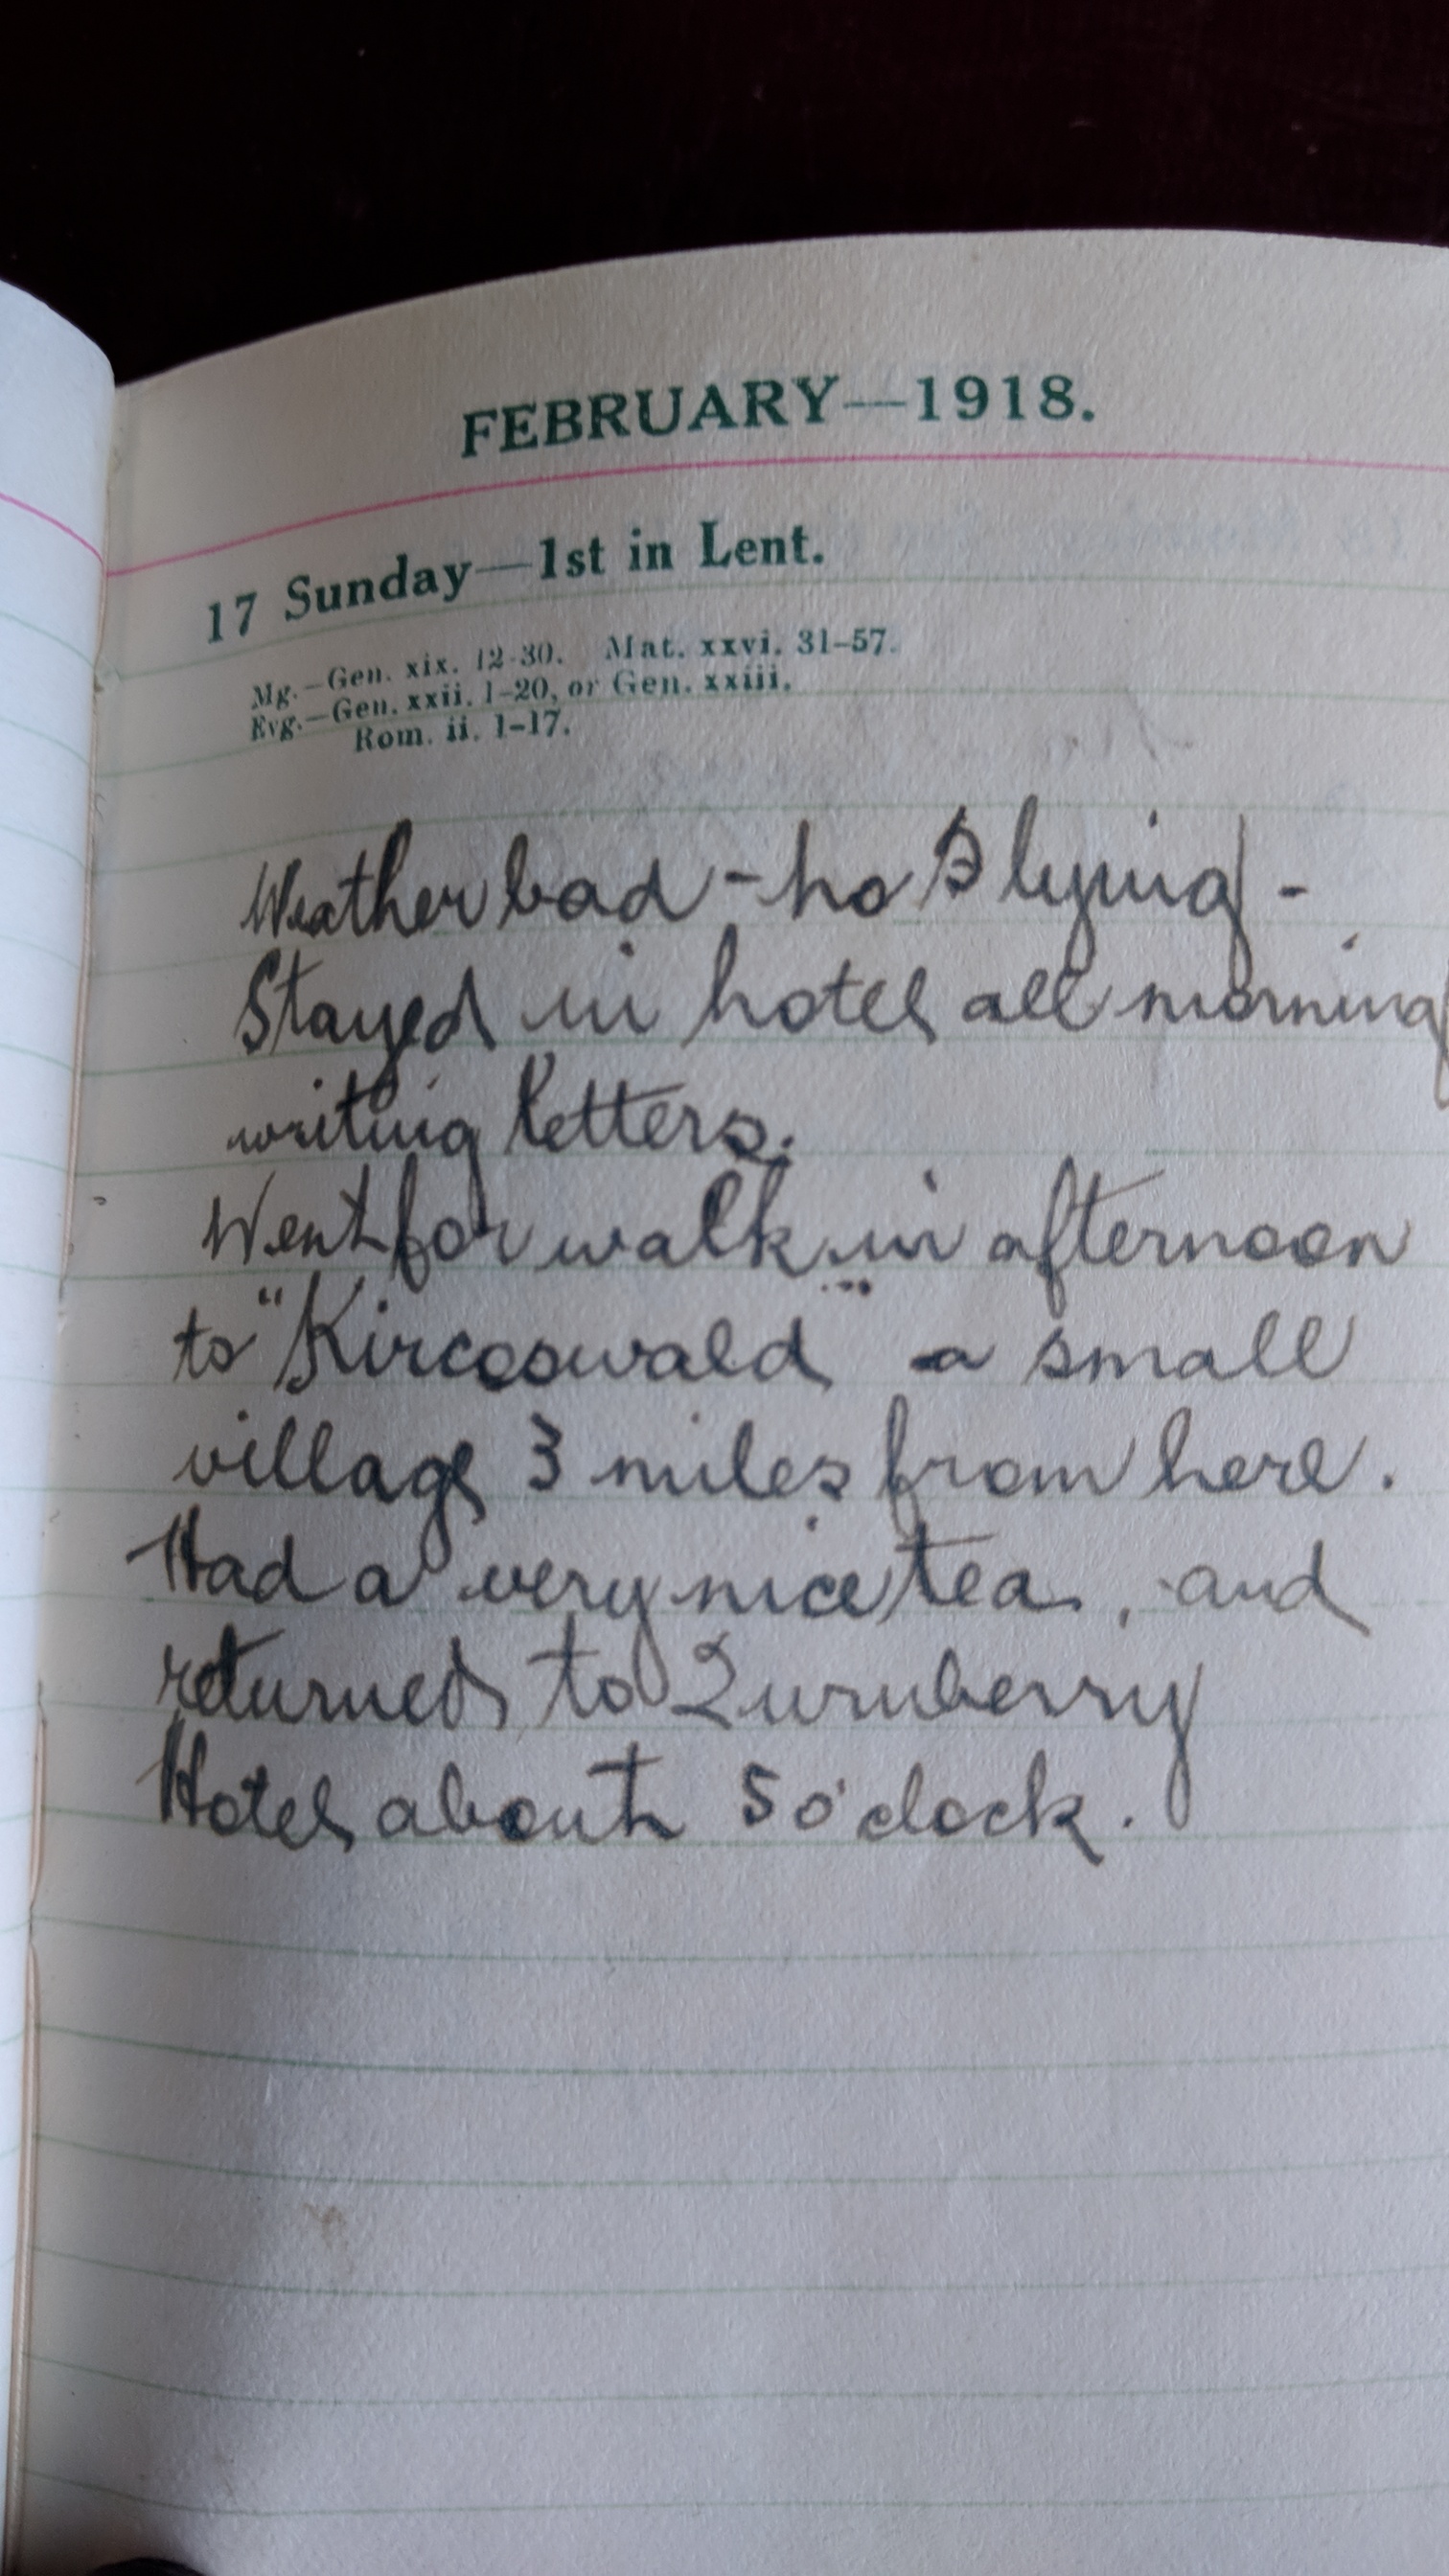 FEBRUARY—1918.
17 Sunday—1st in Lent.
Mg.—Gen. xix. 12-30. Mat. xxvi. 31-57.
Evg.—Gen. xxii. 1-20, or Gen. xxiii.
Rom. ii. 1-17.
Weather bad - no Flying -
Stayed in hotel all morning
writing letters.
Went for walk in afternoon
to "Kircoswald" a small
village 3 miles from here.
Had a very nice tea, and
returned to Turnberry
Hotel about 5 o'clock.